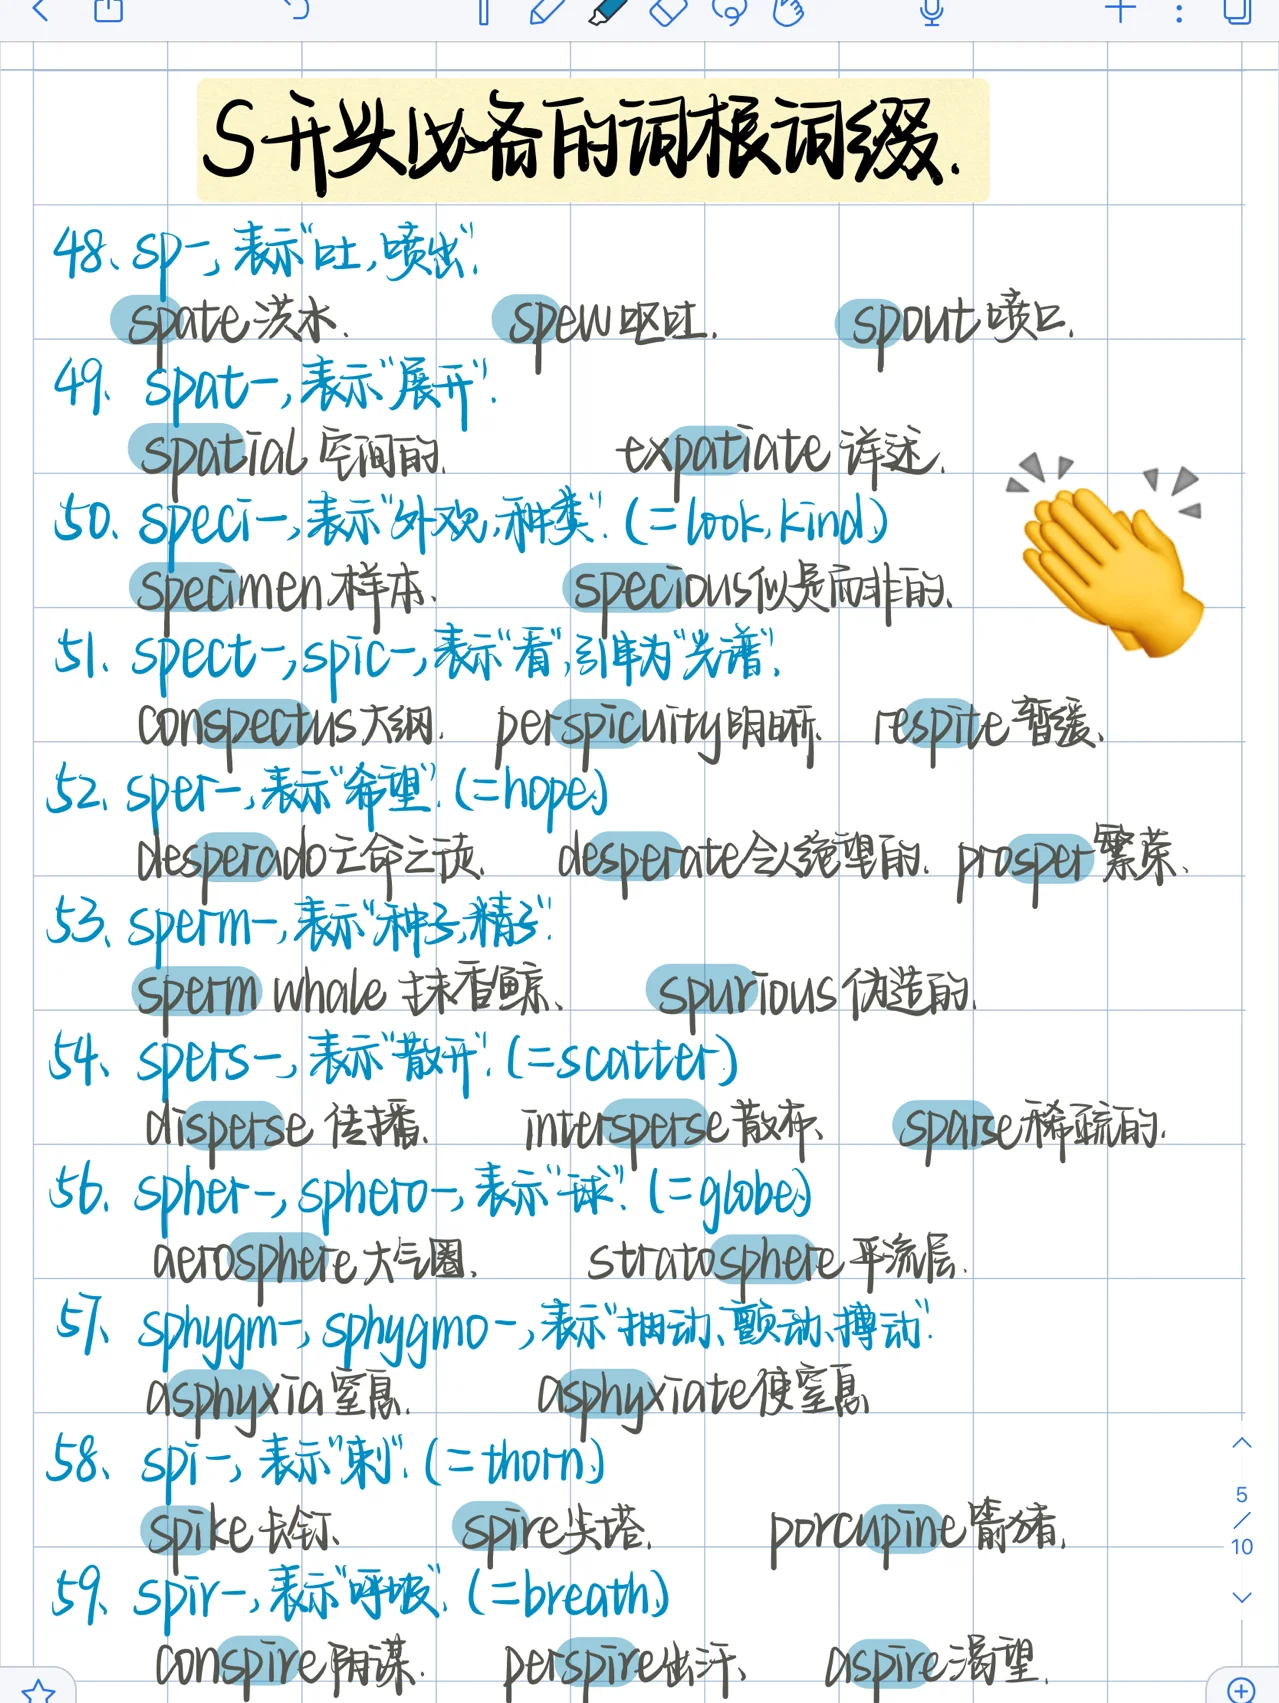 S开头必备的词根词缀.
48、sp-, 表示"吐, 喷出".
spate 洪水. spew 呕吐. spout 喷口.
49、spat-, 表示"展开".
spatial 空间的. expatiate 详述.
50、speci-, 表示"外观, 种类". (=look, kind)
specimen 样本. specious 似是而非的.
51、spect-, spic-, 表示"看", 引申为"光谱".
conspectus 大纲. perspicuity 明晰. respite 暂缓.
52、sper-, 表示"希望". (=hope)
desperado 亡命之徒. desperate 令人绝望的. prosper 繁荣.
53、sperm-, 表示"种子, 精子".
sperm whale 抹香鲸. spurious 伪造的.
54、spers-, 表示"散开". (=scatter)
disperse 传播. intersperse 散布. sparse 稀疏的.
56、spher-, sphero-, 表示"球". (=globe)
aerosphere 大气圈. stratosphere 平流层.
57、sphygm-, sphygmo-, 表示"抽动、颤动、搏动".
asphyxia 窒息. asphyxiate 使窒息
58、spi-, 表示"刺". (=thorn)
spike 长钉. spire 尖塔. porcupine 箭猪.
59、spir-, 表示"呼吸". (=breath)
conspire 阴谋. perspire 出汗. aspire 渴望.
5
/
10